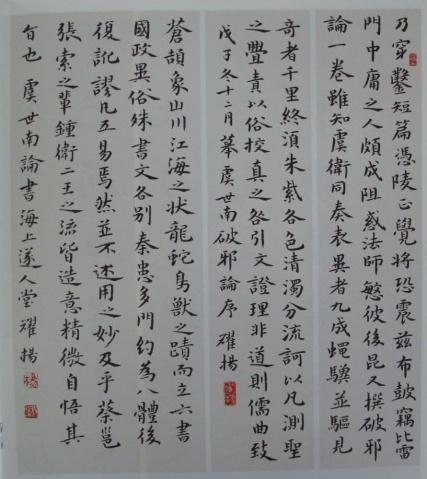 乃穿鑿短篇憑陵正覺將恐震茲布皷竊比雷
門中庸之人頗成阻惑法師慜彼後昆又撰破邪
論一卷雖知虞衛同奏表異者九成蠅驥並驅見
奇者千里終須朱紫各色清濁分流訶以凡測聖
之舋責以俗校真之咎引文證理非道則儒曲致
戊子冬十二月摹虞世南破邪論序耀揚
蒼頡象山川江海之狀龍蛇鳥獸之蹟而立六書
國政異俗殊書文各別秦患多門約為八體後
復訛謬凡五易焉然並不述用之妙及乎蔡邕
張索之輩鍾衛二王之流皆造意精微自悟其
旨也 虞世南論書海上遂人堂耀揚